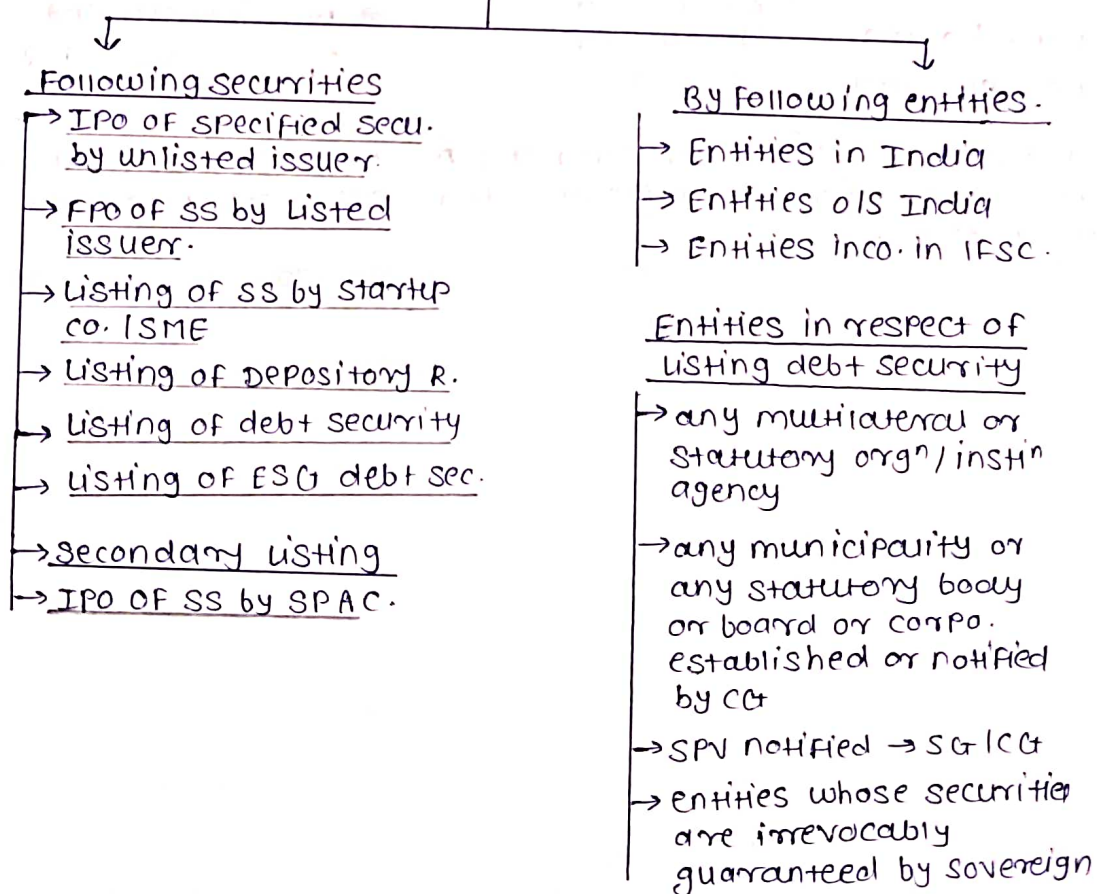 Following securities
→ IPO OF specified secu.
by unlisted issuer.
→ FPO OF SS by Listed
issuer.
→ Listing of SS by Startup
co. / SME
→ Listing of Depository R.
→ Listing of debt security
→ Listing of ESG debt sec.
→ Secondary Listing
→ IPO OF SS by SPAC.
By Following entities.
→ Entities in India
→ Entities o/s India
→ Entities inco. in IFSC.
Entities in respect of
Listing debt security
→ any multilateral or
statutory orgⁿ / instiⁿ
agency
→ any municipality or
any statutory body
or board or corpo.
established or notified
by CG
→ SPV notified → SG / CG
→ entities whose securities
are irrevocably
guaranteed by sovereign